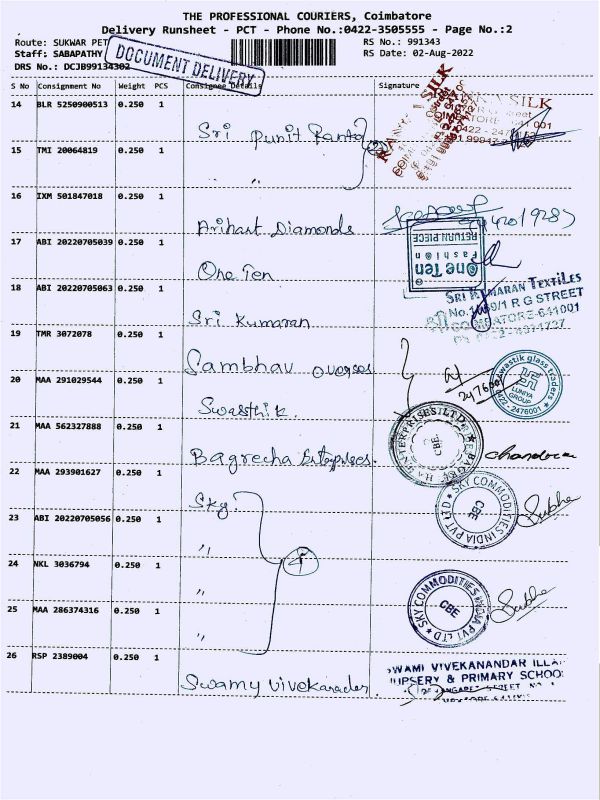 THE PROFESSIONAL COURIERS, Coimbatore
Delivery Runsheet - PCT - Phone No.:0422-3505555 - Page No.:2
Route: SUKWAR PET
RS No.: 991343
Staff: SABAPATHY
RS Date: 02-Aug-2022
DRS No.: DCJB99134302
DOCUMENT DELIVERY
S No Consignment No Weight PCS Consignee Details Signature
14 BLR 5250900513 0.250 1
Sri Punit Panto
15 TMI 20064819 0.250 1
" "
16 IXM 501847018 0.250 1
Arihant Diamonds
17 ABI 20220705039 0.250 1
One Ten
One Ten
Fashion
RETURN PIECE
18 ABI 20220705063 0.250 1
Sri Kumaran
SRI KUMARAN TEXTILES
R G STREET
COIMBATORE-641001
19 TMR 3072078 0.250 1
Sambhav overses
20 MAA 291029544 0.250 1
Swasthik
2476001
swastik glass traders
LUNIYA
GROUP
0422 - 2476001
21 MAA 562327888 0.250 1
Bagrecha Enterprises.
CBE
chandra
22 MAA 293901627 0.250 1
Sky
SKY COMMODITIES INDIA PVT LTD
CBE
Subha
23 ABI 20220705056 0.250 1
"
24 NKL 3036794 0.250 1
"
SKY COMMODITIES INDIA PVT LTD
CBE
Subha
25 MAA 286374316 0.250 1
"
26 RSP 2389004 0.250 1
Swamy Vivekanander
SWAMI VIVEKANANDAR
& PRIMARY SCHOOL